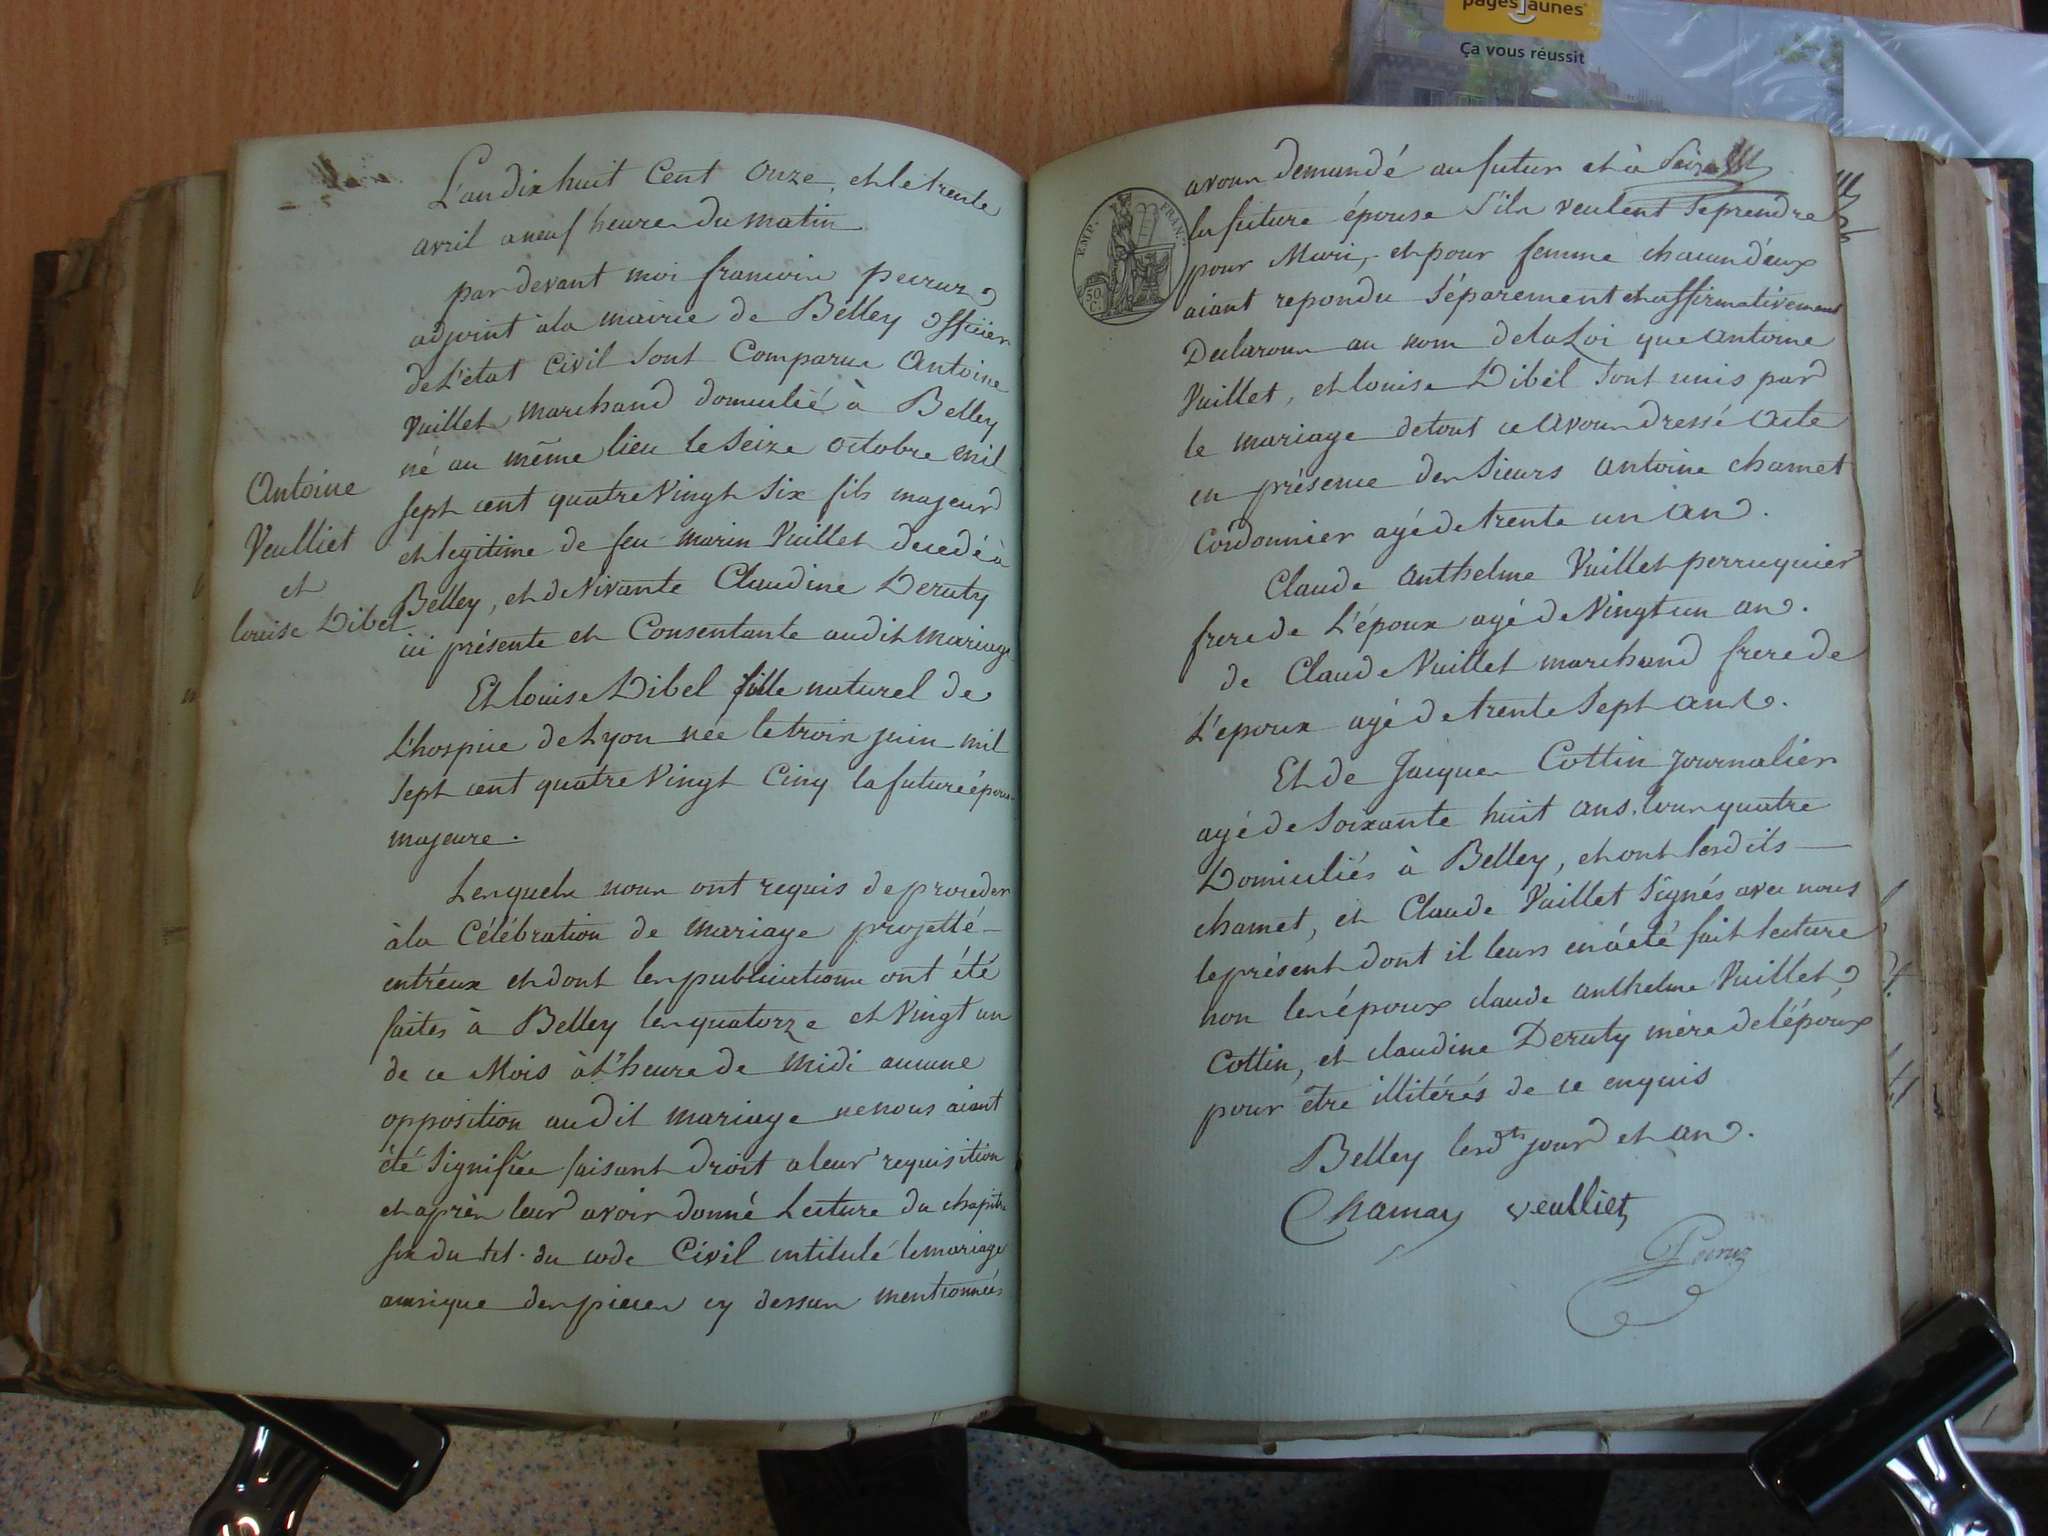 pagesJaunes
Ça vous réussit
L'an dix huit Cent Onze, et le trente
avril a neuf heures du matin
par devant moi francois peyruz
adjoint à la mairie de Belley officier
de L'état Civil sont Comparus Antoine
Vuillet marchand domicilié à Belley
né au même lieu le seize octobre mil
sept cent quatre Vingt six fils majeur
et legitime de feu marin Vuillet decedé à
Belley, et de vivante Claudine Deruty
ici présente et Consentante audit mariage
Antoine
Veulliet
et
louise Dibel
Et louise Dibel fille naturel de
L'hospice de Lyon née le trois juin mil
sept cent quatre Vingt Cinq la future épouse
majeure.
Lesquels nous ont requis de proceder
à la Célébration de mariage projetté
entréux et dont les publications ont été
faites à Belley les quatorze et vingt un
de ce Mois à L'heure de midi aucune
opposition audit mariage ne nous aiant
été Signifiée faisant droit a leur requisition
et après leur avoir donné Lecture du chapitre
six du tit. du code Civil intitulé le mariage
ainsi que des pieces cy dessus mentionnées
EMP. FRAN.
50
C.
avons demandé au futur et à
la future épouse s'ils veulent se prendre
pour Mari, et pour femme chacun d'eux
aiant repondu Séparement et affirmativement
Declarons au nom de la Loi que antoine
Vuillet, et louise Dibel sont unis par
le mariage de tout ce avons dressé acte
en présence des Sieurs antoine chamet
Cordonnier agé de trente un ans.
Claude anthelme Vuillet perruquier
frere de L'époux agé de Vingt un ans.
de Claude Vuillet marchand frere de
L'époux agé de trente sept ans.
Et de Jacques Cottin Journalier
agé de soixante huit ans. tous quatre
Domiciliés à Belley, et ont lesdits
chamet, et Claude Vuillet Signés avec nous
le présent dont il leurs en à été fait lecture
non les époux claude anthelme Vuillet,
Cottin, et claudine Deruty mére de l'époux
pour être illitérés de ce enquis
Belley lesdts jour et an.
Chamay veulliet
Peyruz